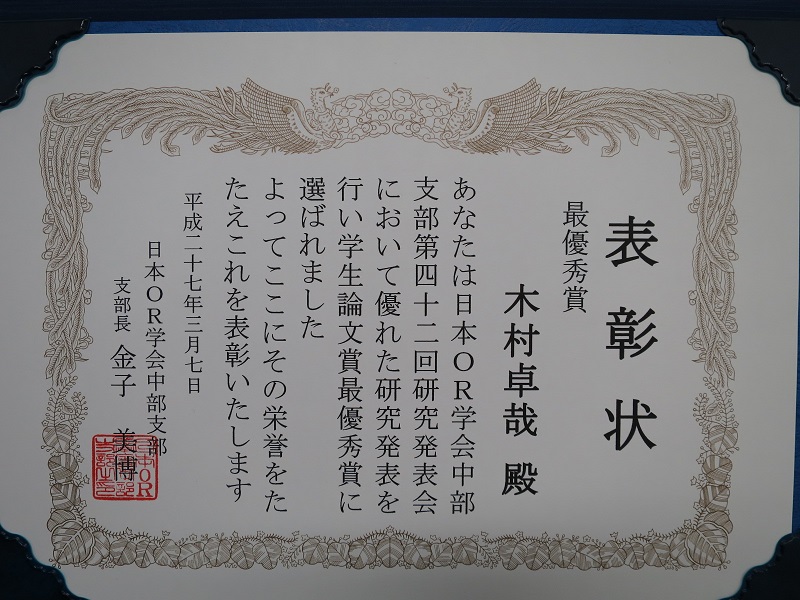 表彰状
最優秀賞
木村卓哉 殿
あなたは日本OR学会中部
支部第四十二回研究発表会
において優れた研究発表を
行い学生論文賞最優秀賞に
選ばれました
よってここにその栄誉をた
たえこれを表彰いたします
平成二十七年三月七日
日本OR学会中部支部
支部長 金子 美博